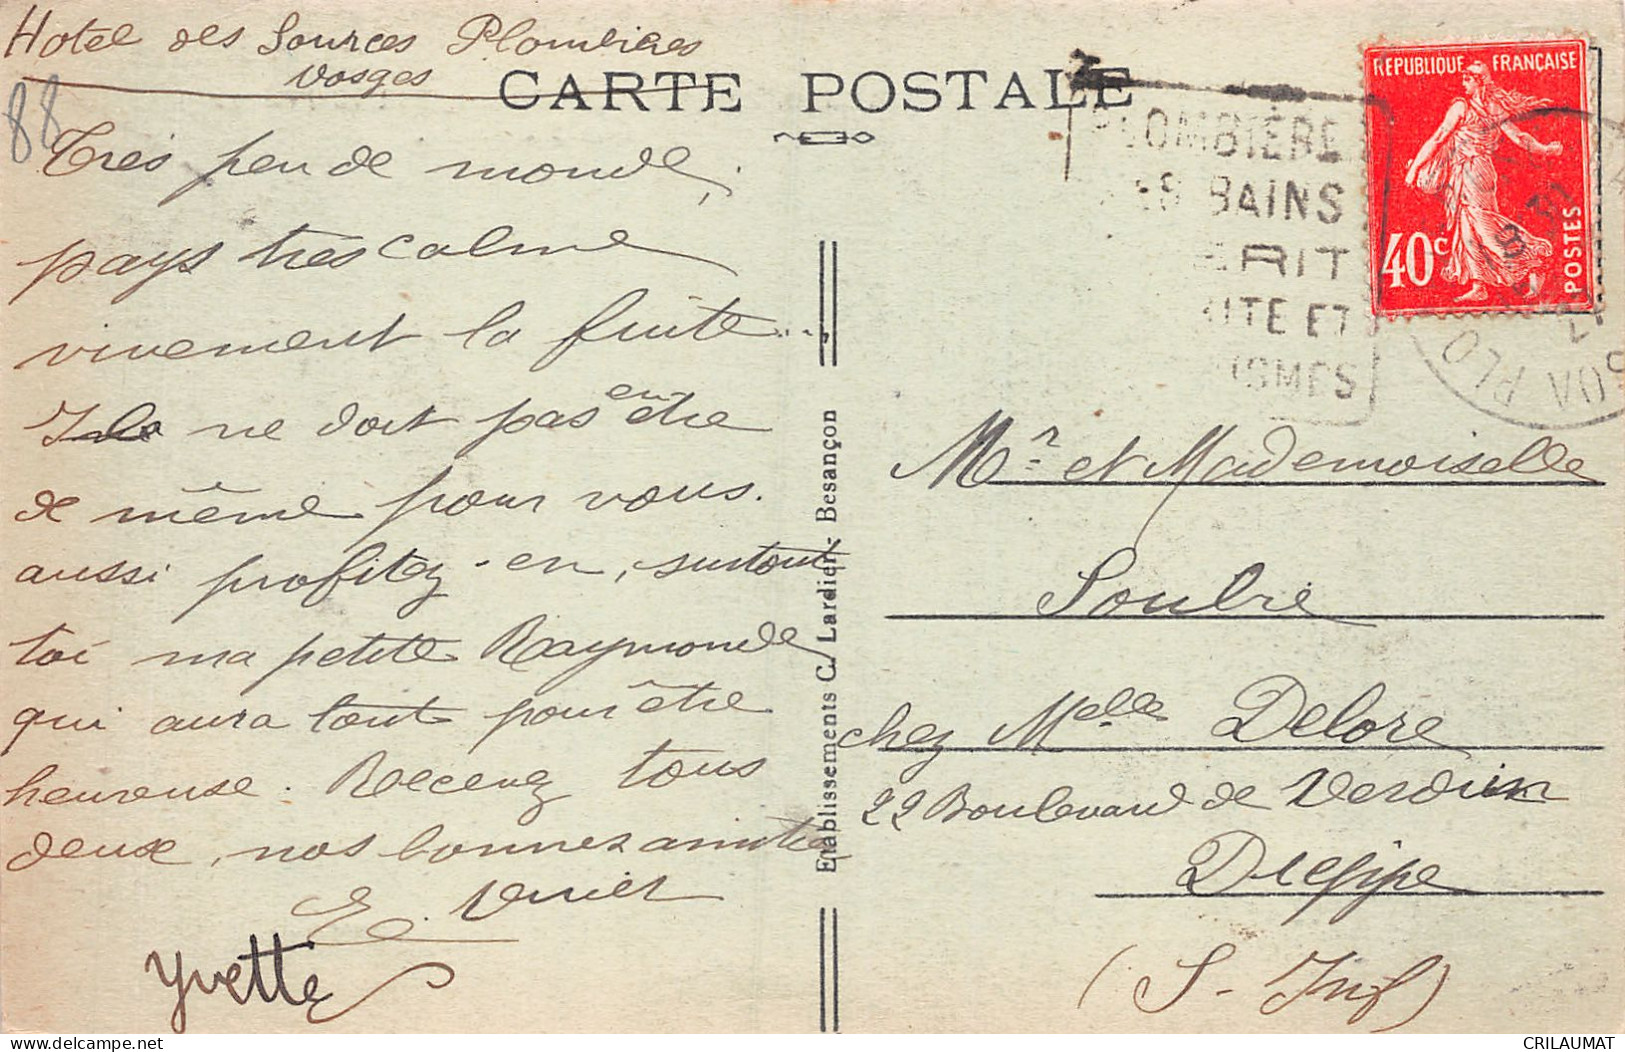 Hotel des Sources Plombières
Vosges
88
CARTE POSTALE
Très peu de monde,
pays très calme
vivement la fuite....
Il ne doit pas en être
de même pour vous.
aussi profitez-en, surtout
toi ma petite Raymonde
qui aura tout pour être
heureuse. Recevez tous
deux, nos bonnes amitiés
Yvette
Etablissements C. Lardier - Besançon
REPUBLIQUE FRANÇAISE
40c
POSTES
PLOMBIÈRE
LES BAINS
ERIT
ITE ET
ISMES
Mr et Mademoiselle
Soulre
chez Melle Delore
22 Boulevard de Verdun
Dieppe
(S. Inf)
CRILAUMAT
delcampe.net